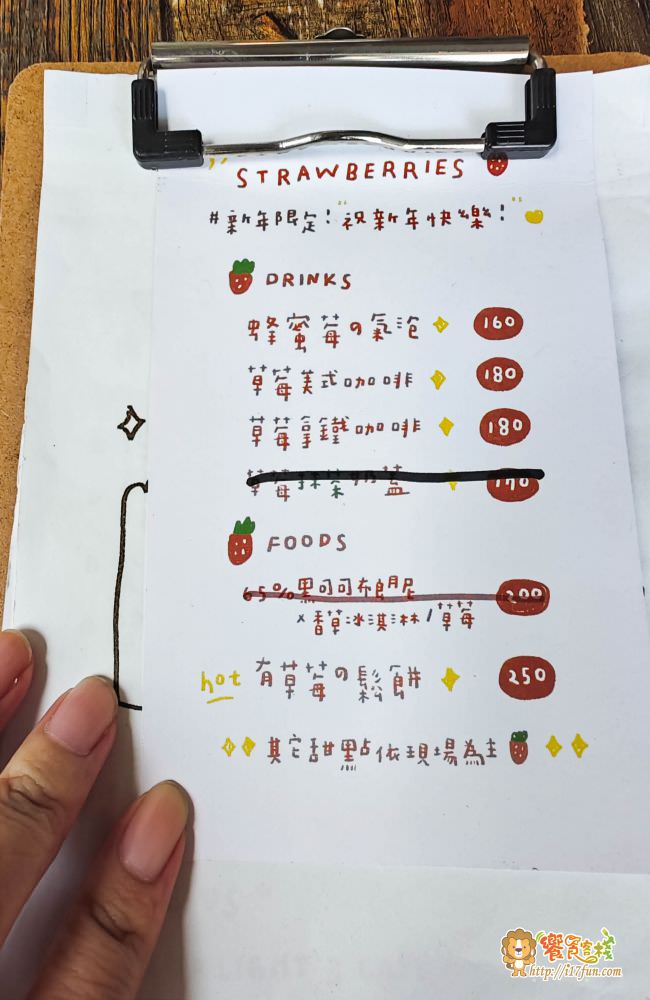 STRAWBERRIES
#新年限定！祝新年快樂！
DRINKS
蜂蜜莓の氣泡 160
草莓美式咖啡 180
草莓拿鐵咖啡 180
草莓抹茶奶蓋 170
FOODS
65%黑可可布朗尼 200
×香草冰淇淋/草莓
hot 有草莓の鬆餅 250
其它甜點依現場為主
饗宴客棧
http://i17fun.com